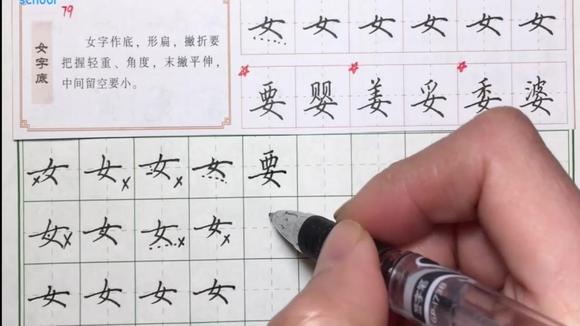 school
79
女 女 女 女 女 女
女字底
女字作底，形扁，撇折要
把握轻重、角度，末撇平伸，
中间留空要小。
要 婴 姜 妥 委 婆
女 女 女 女 要
女 女 女 女
女 女 女 女